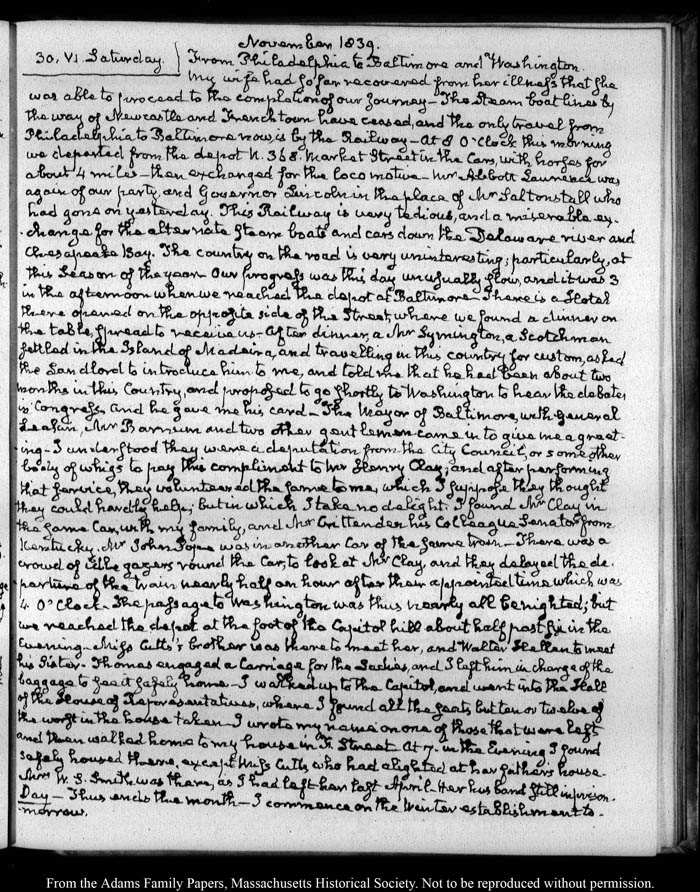 November 1839.
30. VI. Saturday. } From Philadelphia to Baltimore and Washington.
My wife had so far recovered from her illness that she
was able to proceed to the completion of our journey – The Steam boat lines by
the way of Newcastle and Frenchtown have ceased, and the only travel from
Philadelphia to Baltimore now is by the Railway – At 8 O'Clock this morning
we departed from the depot N. 368. Market Street in the Cars, with horses for
about 4 miles – then exchanged for the locomotive – Mr Abbott Lawrence was
again of our party, and Governor Lincoln in the place of Mr Saltonstall who
had gone on yesterday. This Railway is very tedious, and a miserable ex-
change for the alternate Steam boats and cars down the Delaware river and
Chesapeake Bay. The country on the road is very uninteresting; particularly, at
this Season of the year – Our progress was this day unusually slow, and it was 3
in the afternoon when we reached the depot at Baltimore – There is a Hotel
there opened on the opposite side of the Street, where we found a dinner on
the table, spread to receive us – After dinner, a Mr Symington, a Scotchman
settled in the Island of Madeira, and travelling in this country for custom, asked
the Landlord to introduce him to me, and told me that he had been about two
months in this Country, and proposed to go shortly to Washington to hear the debates
in Congress and he gave me his card – The Mayor of Baltimore, with General
Leakin, Mr Barnum and two other gentlemen came in to give me a greet-
ing – I understood they were a deputation from the City Council, or some other
body of whigs to pay this compliment to Mr Henry Clay; and after performing
that service, they volunteered the same to me, which I suppose they thought
they could hardly help; but in which I take no delight. I found Mr Clay in
the same Car, with my family, and Mr Crittenden his Colleague Senator from
Kentucky. Mr John Pope was in another Car of the same train – There was a
crowd of idle gazers round the Car, to look at Mr Clay, and they delayed the de-
parture of the train nearly half an hour after their appointed time which was
4. O'Clock – The passage to Washington was thus nearly all benighted; but
we reached the depot at the foot of the Capitol hill about half past six in the
Evening – Miss Cutts's brother was there to meet her, and Walter Hellen to meet
his Sister – Thomas engaged a Carriage for the Ladies, and I left him in charge of the
baggage to see it safely home – I walked up to the Capitol, and went into the Hall
of the House of Representatives, where I found all the seats, but ten or twelve of
the worst in the house taken – I wrote my name on one of those that were left
and then walked home to my house in F. Street. At 7. in the Evening I found
safely housed there, except Miss Cutts, who had alighted at her father's house –
Mrs W. S. Smith was there, as I had left her last April – Her husband still in prison.
Day – Thus ends the month – I commence on the Winter establishment to-
-morrow.
From the Adams Family Papers, Massachusetts Historical Society. Not to be reproduced without permission.